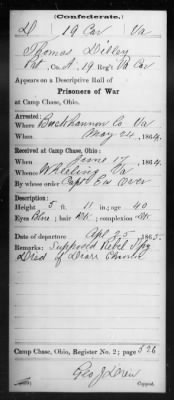 (Confederate.)
D 19 Cav Va
Thomas Dilley
Pvt, Co. A, 19 Reg't Va Cav
Appears on a Descriptive Roll of
Prisoners of War
at Camp Chase, Ohio.
Arrested:
Where Buckhannon Co Va
When May 24, 1864
Received at Camp Chase, Ohio:
When June 17, 1864
Where Wheeling Va
By whose order Capt Ew Over
Description:
Height 5 ft. 11 in.; age 40
Eyes Blue; hair Dk; complexion Dk.
Date of departure Apl 25, 1865.
Remarks: Supposed Rebel Spy
Died of Chronic
Camp Chase, Ohio, Register No. 2; page 526
Geo J Drew
Copyist.